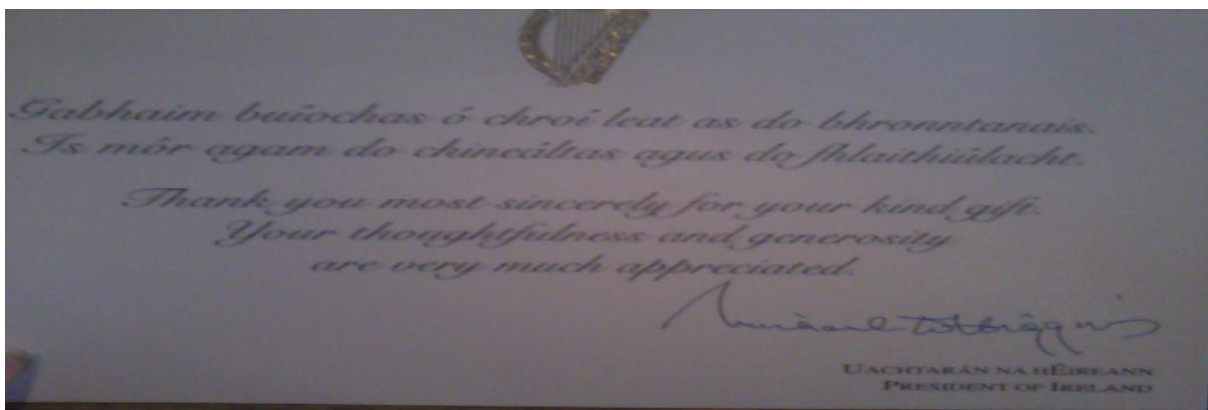 Gabhaim buíochas ó chroí leat as do bhronntanais.
Is mór agam do chineáltas agus do fhlaithiúlacht.
Thank you most sincerely for your kind gift.
Your thoughtfulness and generosity
are very much appreciated.
UACHTARÁN NA HÉIREANN
PRESIDENT OF IRELAND